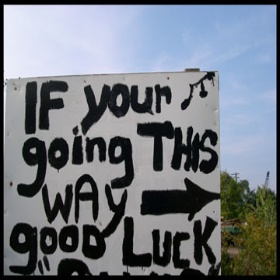 IF your
going THIS
WAY →
good LUCK